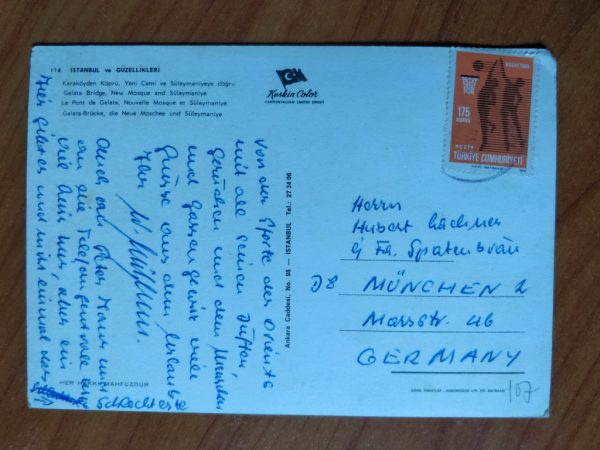 114 İSTANBUL ve GÜZELLİKLERİ
Karaköyden Köprü, Yeni Cami ve Süleymaniyeye doğru
Galata Bridge, New Mosque and Süleymaniye
Le Pont de Galata, Nouvelle Mosque et Süleymaniye
Galata-Brücke, die Neue Moschee und Süleymaniye
Keskin Color
KARTPOSTALCILIK LIMITED ŞİRKETİ
BASKETBOL
175
KURUŞ
POSTA
TÜRKİYE CUMHURİYETİ
Von der Pforte des Orients
mit all seinen Düften,
Gerüchen und dem
und Gassengewirr viele
Grüsse aus dem Urlaub
Ihr
Auch an Peter Mann und
an die Telefonzentrale
viele
Hier gibt es
nicht einmal
schlechteste
Ankara Caddesi, No. 98 — İSTANBUL Tel.: 27 34 06
Herrn
Hubert
Fa. Spatenbräu
D8 MÜNCHEN 2
Marsstr. 46
GERMANY
HER HAKKI MAHFUZDUR
107